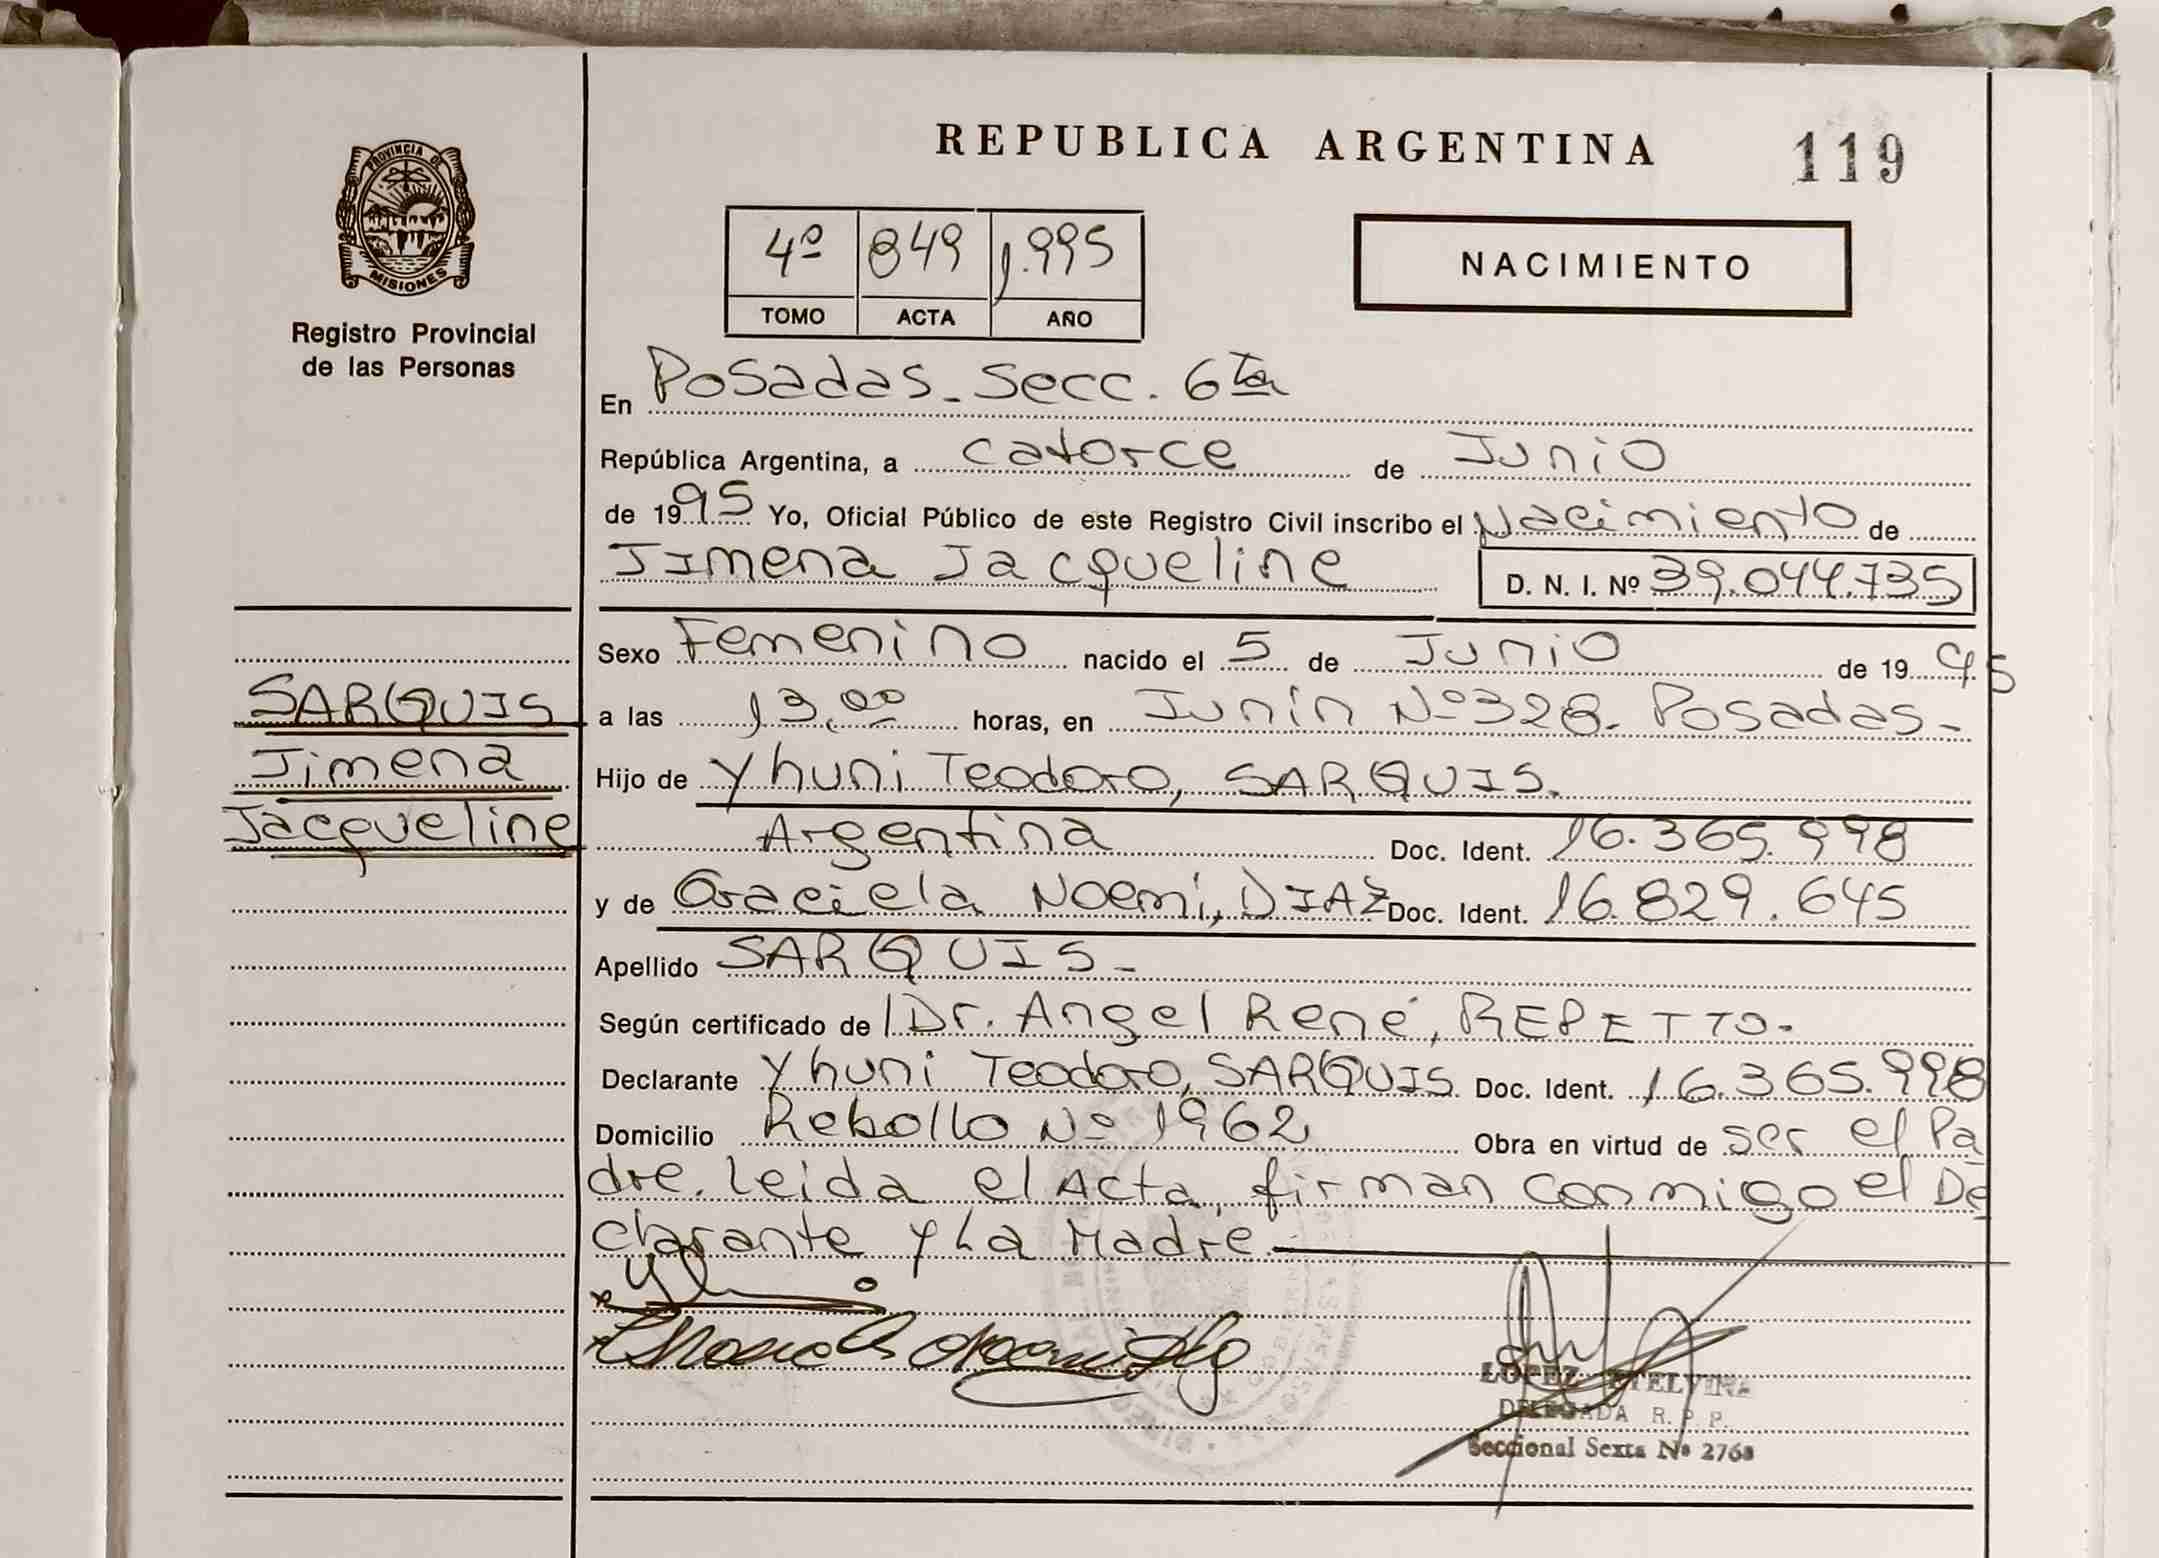 REPUBLICA ARGENTINA
119
PROVINCIA DE
MISIONES
Registro Provincial
de las Personas
4º 849 1.995
TOMO ACTA AÑO
NACIMIENTO
En Posadas - Secc. 6ta
República Argentina, a catorce de Junio
de 1995 Yo, Oficial Público de este Registro Civil inscribo el Nacimiento de
Jimena Jacqueline D. N. I. Nº 39.044.735
Sexo Femenino nacido el 5 de Junio de 1995
SARQUIS
Jimena
Jacqueline
a las 13,00 horas, en Junín Nº 328 - Posadas -
Hijo de Yhuni Teodoro, SARQUIS.
Argentina Doc. Ident. 16.365.998
y de Graciela Noemi, DIAZ Doc. Ident. 16.829.645
Apellido SARQUIS -
Según certificado de Dr. Angel René, REPETTO -
Declarante Yhuni Teodoro, SARQUIS Doc. Ident. 16.365.998
Domicilio Rebollo Nº 1962 Obra en virtud de ser el Pa
dre. Leida el Acta, firman conmigo el De
clarante y La Madre
LOPEZ ETELVINA
DELEGADA R. P. P.
Seccional Sexta Nº 2768